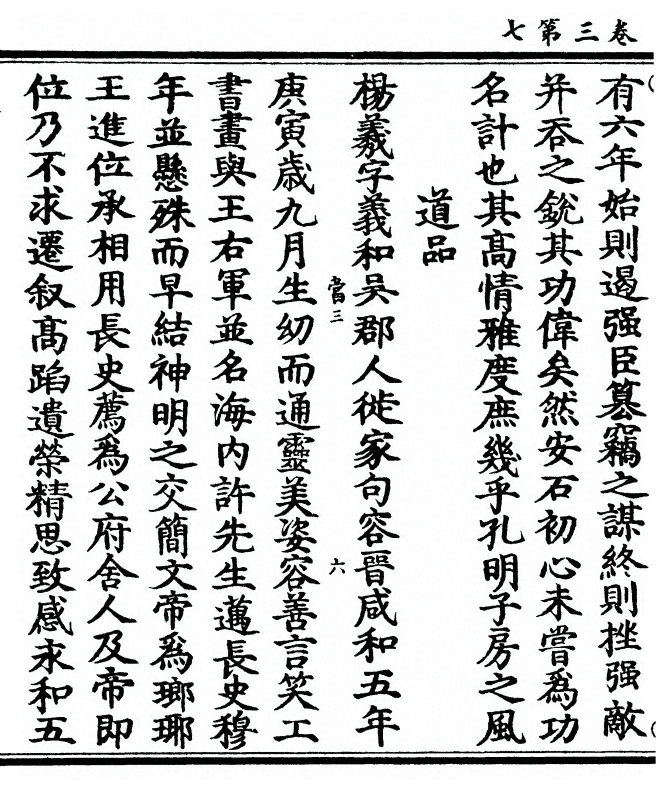 卷三第七
有六年始則遏强臣篡竊之謀終則挫强敵
并吞之銳其功偉矣然安石初心未嘗爲功
名計也其高情雅度庶幾乎孔明子房之風
道品
楊羲字羲和吳郡人徙家句容晉咸和五年
當三
六
庚寅歲九月生幼而通靈美姿容善言笑工
書畫與王右軍並名海内許先生邁長史穆
年並懸殊而早結神明之交簡文帝爲瑯琊
王進位承相用長史薦爲公府舍人及帝即
位乃不求遷叙髙蹈遺榮精思致感永和五